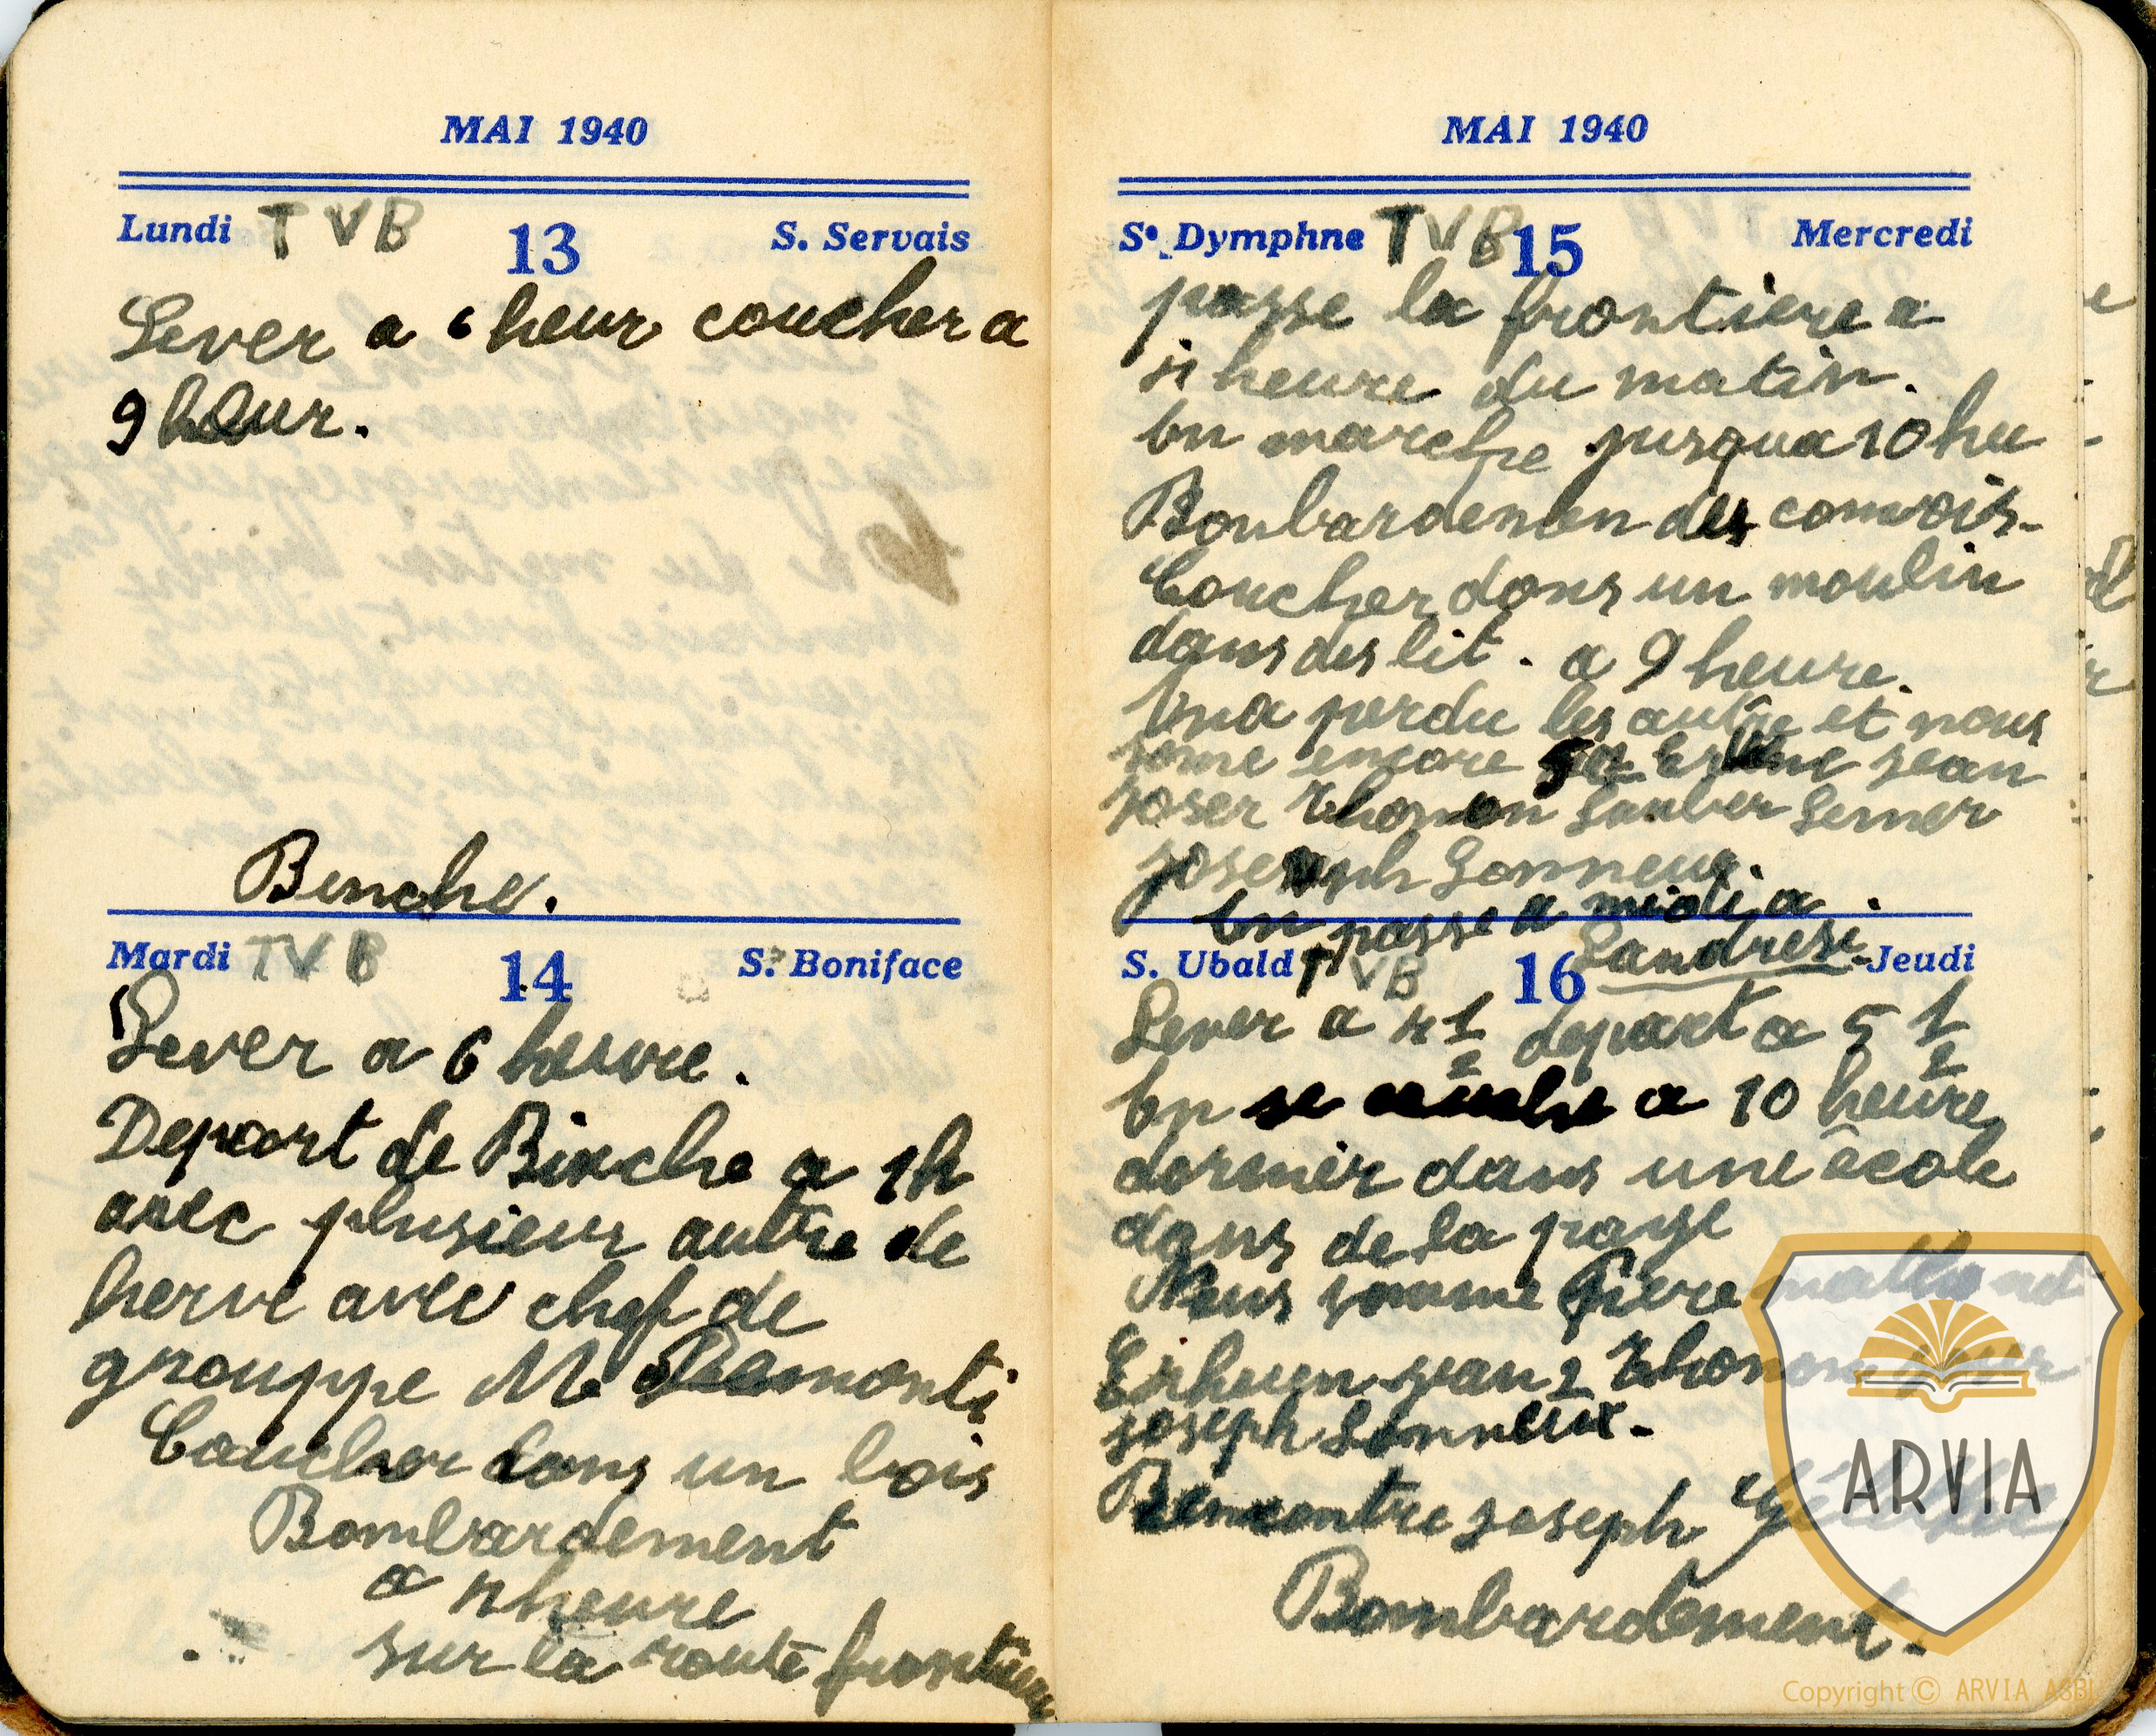 MAI 1940
Lundi TVB 13 S. Servais
Lever a 6 heur coucher a
9 heur.
Binche.
Mardi TVB 14 S. Boniface
Lever a 6 heure.
Depart de Binche a 1h
avec plusieur autre de
herve avec chef de
grouppe M.
Coucher dans un bois
Bombardement
a 4 heure
sur la route frontiere
MAI 1940
Se Dymphne TVB 15 Mercredi
passe la frontiere a
heure du matin.
On marche jusqua 10 heu
Bonbardemen des convois.
Coucher dans un moulin
dans des lit. a 9 heure.
On a perdu les autre et nous
some encore jean
joser Thonon
joseph Lonneux.
On passe a midi a
Landresi
S. Ubald TVB 16 Jeudi
Lever a 4 1/2 depart a 5 1/2
On se couche a 10 heure
dormir dans une école
dans de la paye
Nous somme
jean 2 Thonon
joseph Lonneux.
Rencontre joseph
Bombardement.
ARVIA
Copyright © ARVIA ASBL